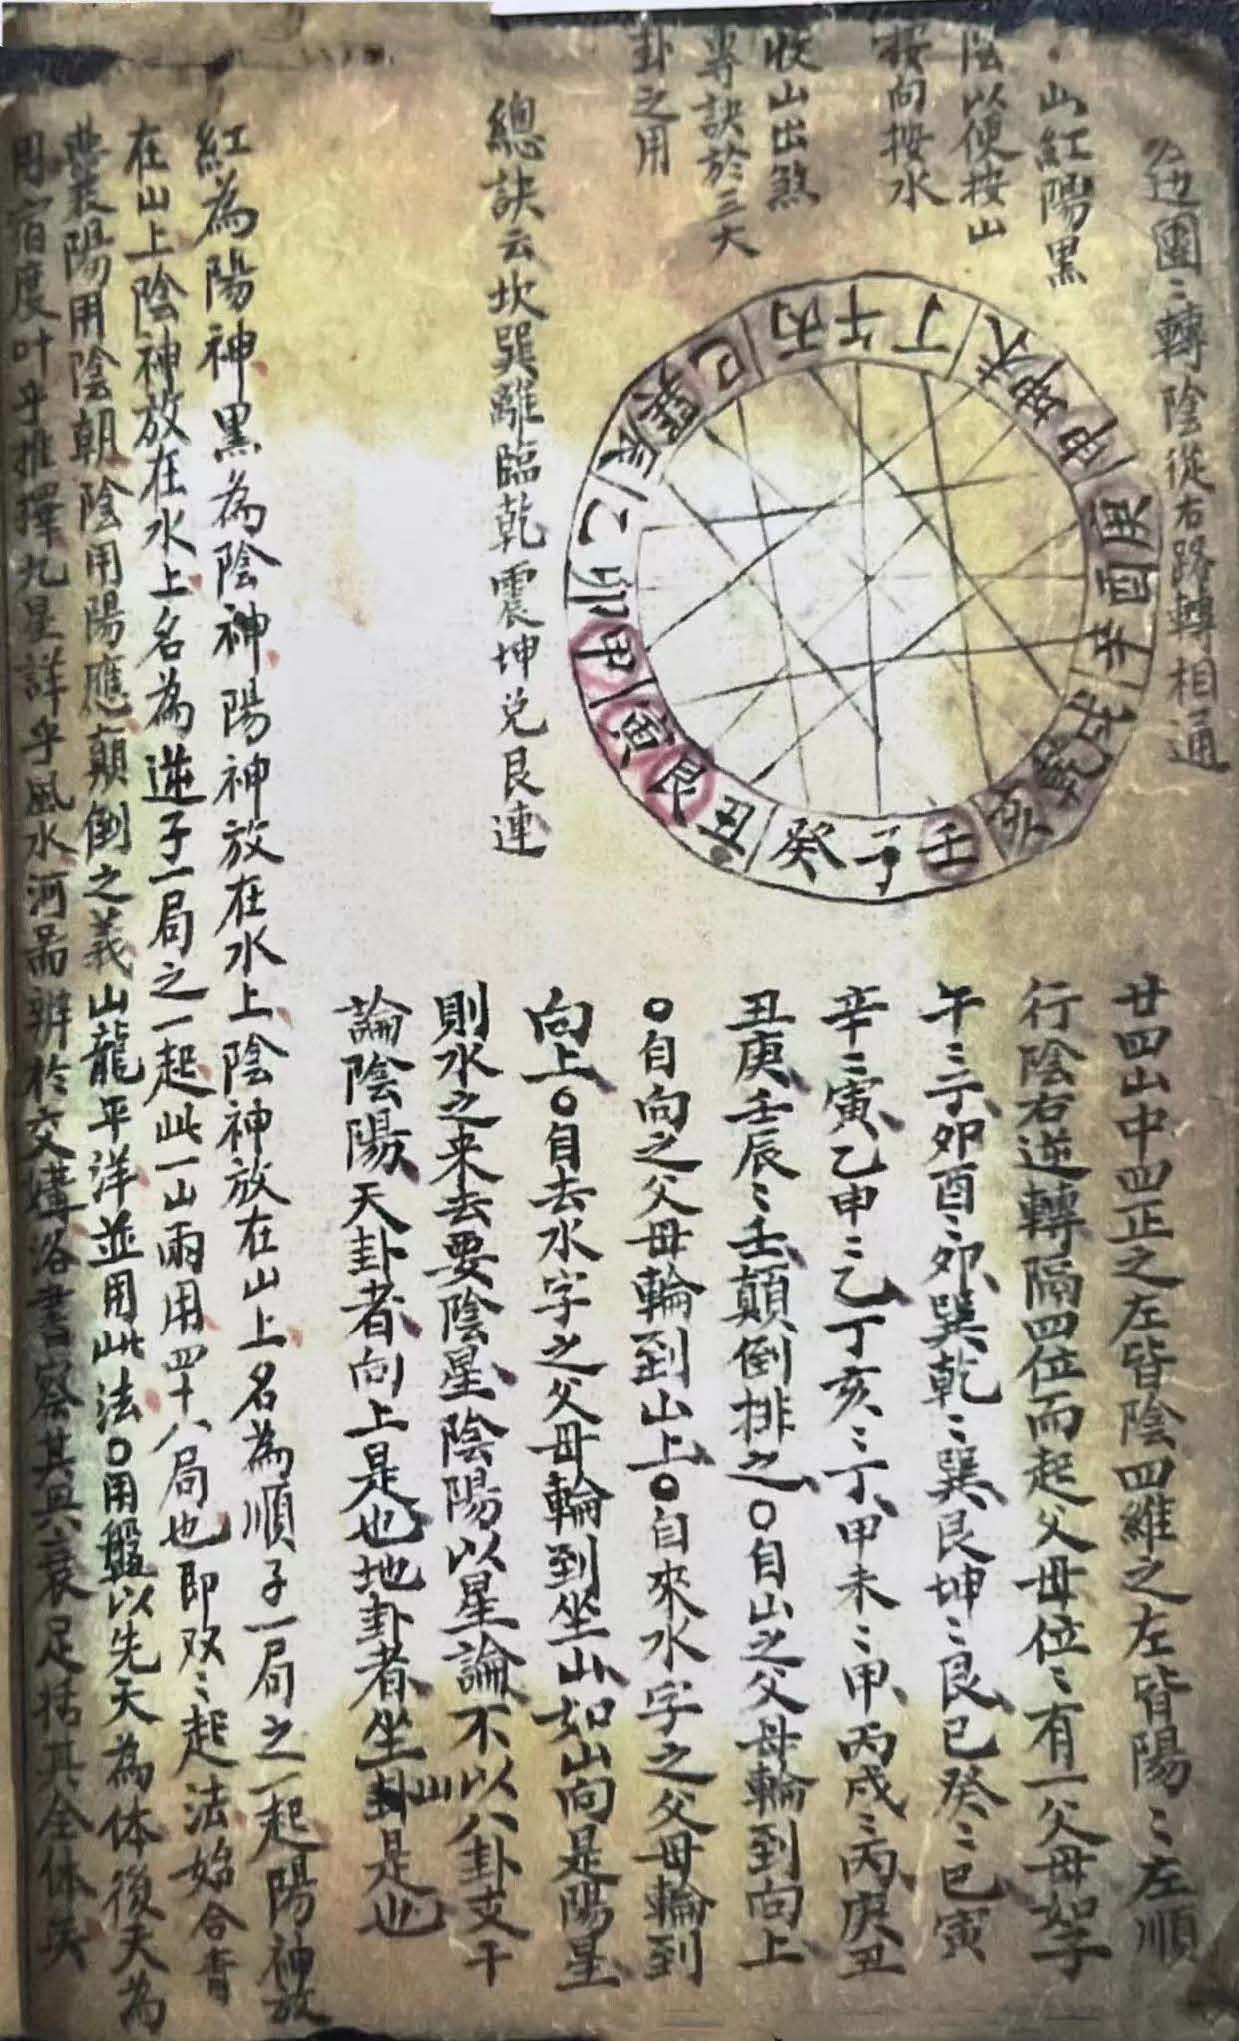 边團〻轉陰從右路轉相通
山紅陽黑
陰以便按山
按向按水
收山出煞
專訣於三大
卦之用
丙午丁
未坤申
庚酉辛
戌乾亥
壬子癸
丑艮寅
甲卯乙
辰巽巳
總訣云坎巽離臨乾震坤兌艮連
廿四山中四正之左皆陰四維之左皆陽〻左順
行陰右逆轉隔四位而起父母位〻有一父母如子
午〻子卯酉〻卯巽乾〻巽艮坤〻艮巳癸〻巳寅
辛〻寅乙申〻乙丁亥〻丁甲未〻甲丙戌〻丙庚丑
丑庚壬辰〻壬顛倒排之○自山之父母輪到向上
○自向之父母輪到山上○自來水字之父母輪到
向上○自去水字之父母輪到坐山如山向是陽星
則水之来去要陰星陰陽以星論不以八卦支干
論陰陽天卦者向上是也地卦者坐山是也
紅為陽神黑為陰神陽神放在水上陰神放在山上名為順子一局之一起陽神放
在山上陰神放在水上名為逆子一局之一起此一山兩用四十八局也即双〻起法始合青
囊陽用陰朝陰用陽應顛倒之義山龍平洋並用此法○用盤以先天為体後天為
用宿度叶乎推擇九星詳乎風水河啚辨於交媾洛書察其興衰足括其全体矣